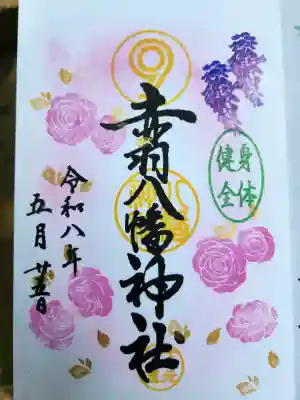 身体
健全
赤羽八幡神社
令和八年
五月廿五日